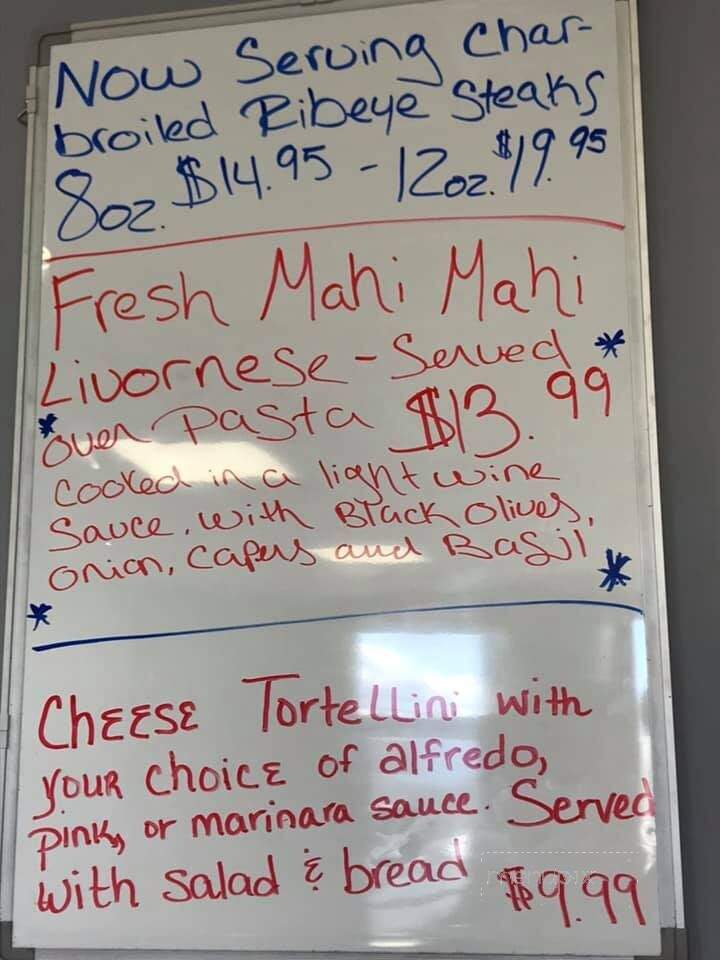 Now Serving Char-
broiled Ribeye Steaks
8oz. $14.95 - 12oz. $19.95
Fresh Mahi Mahi
Livornese - Served *
* over pasta $13.99
cooked in a light wine
sauce, with Black Olives,
onion, capers and Basil
* *
CHEESE Tortellini with
your choice of alfredo,
pink, or marinara sauce. Served
with salad & bread $9.99
menupix